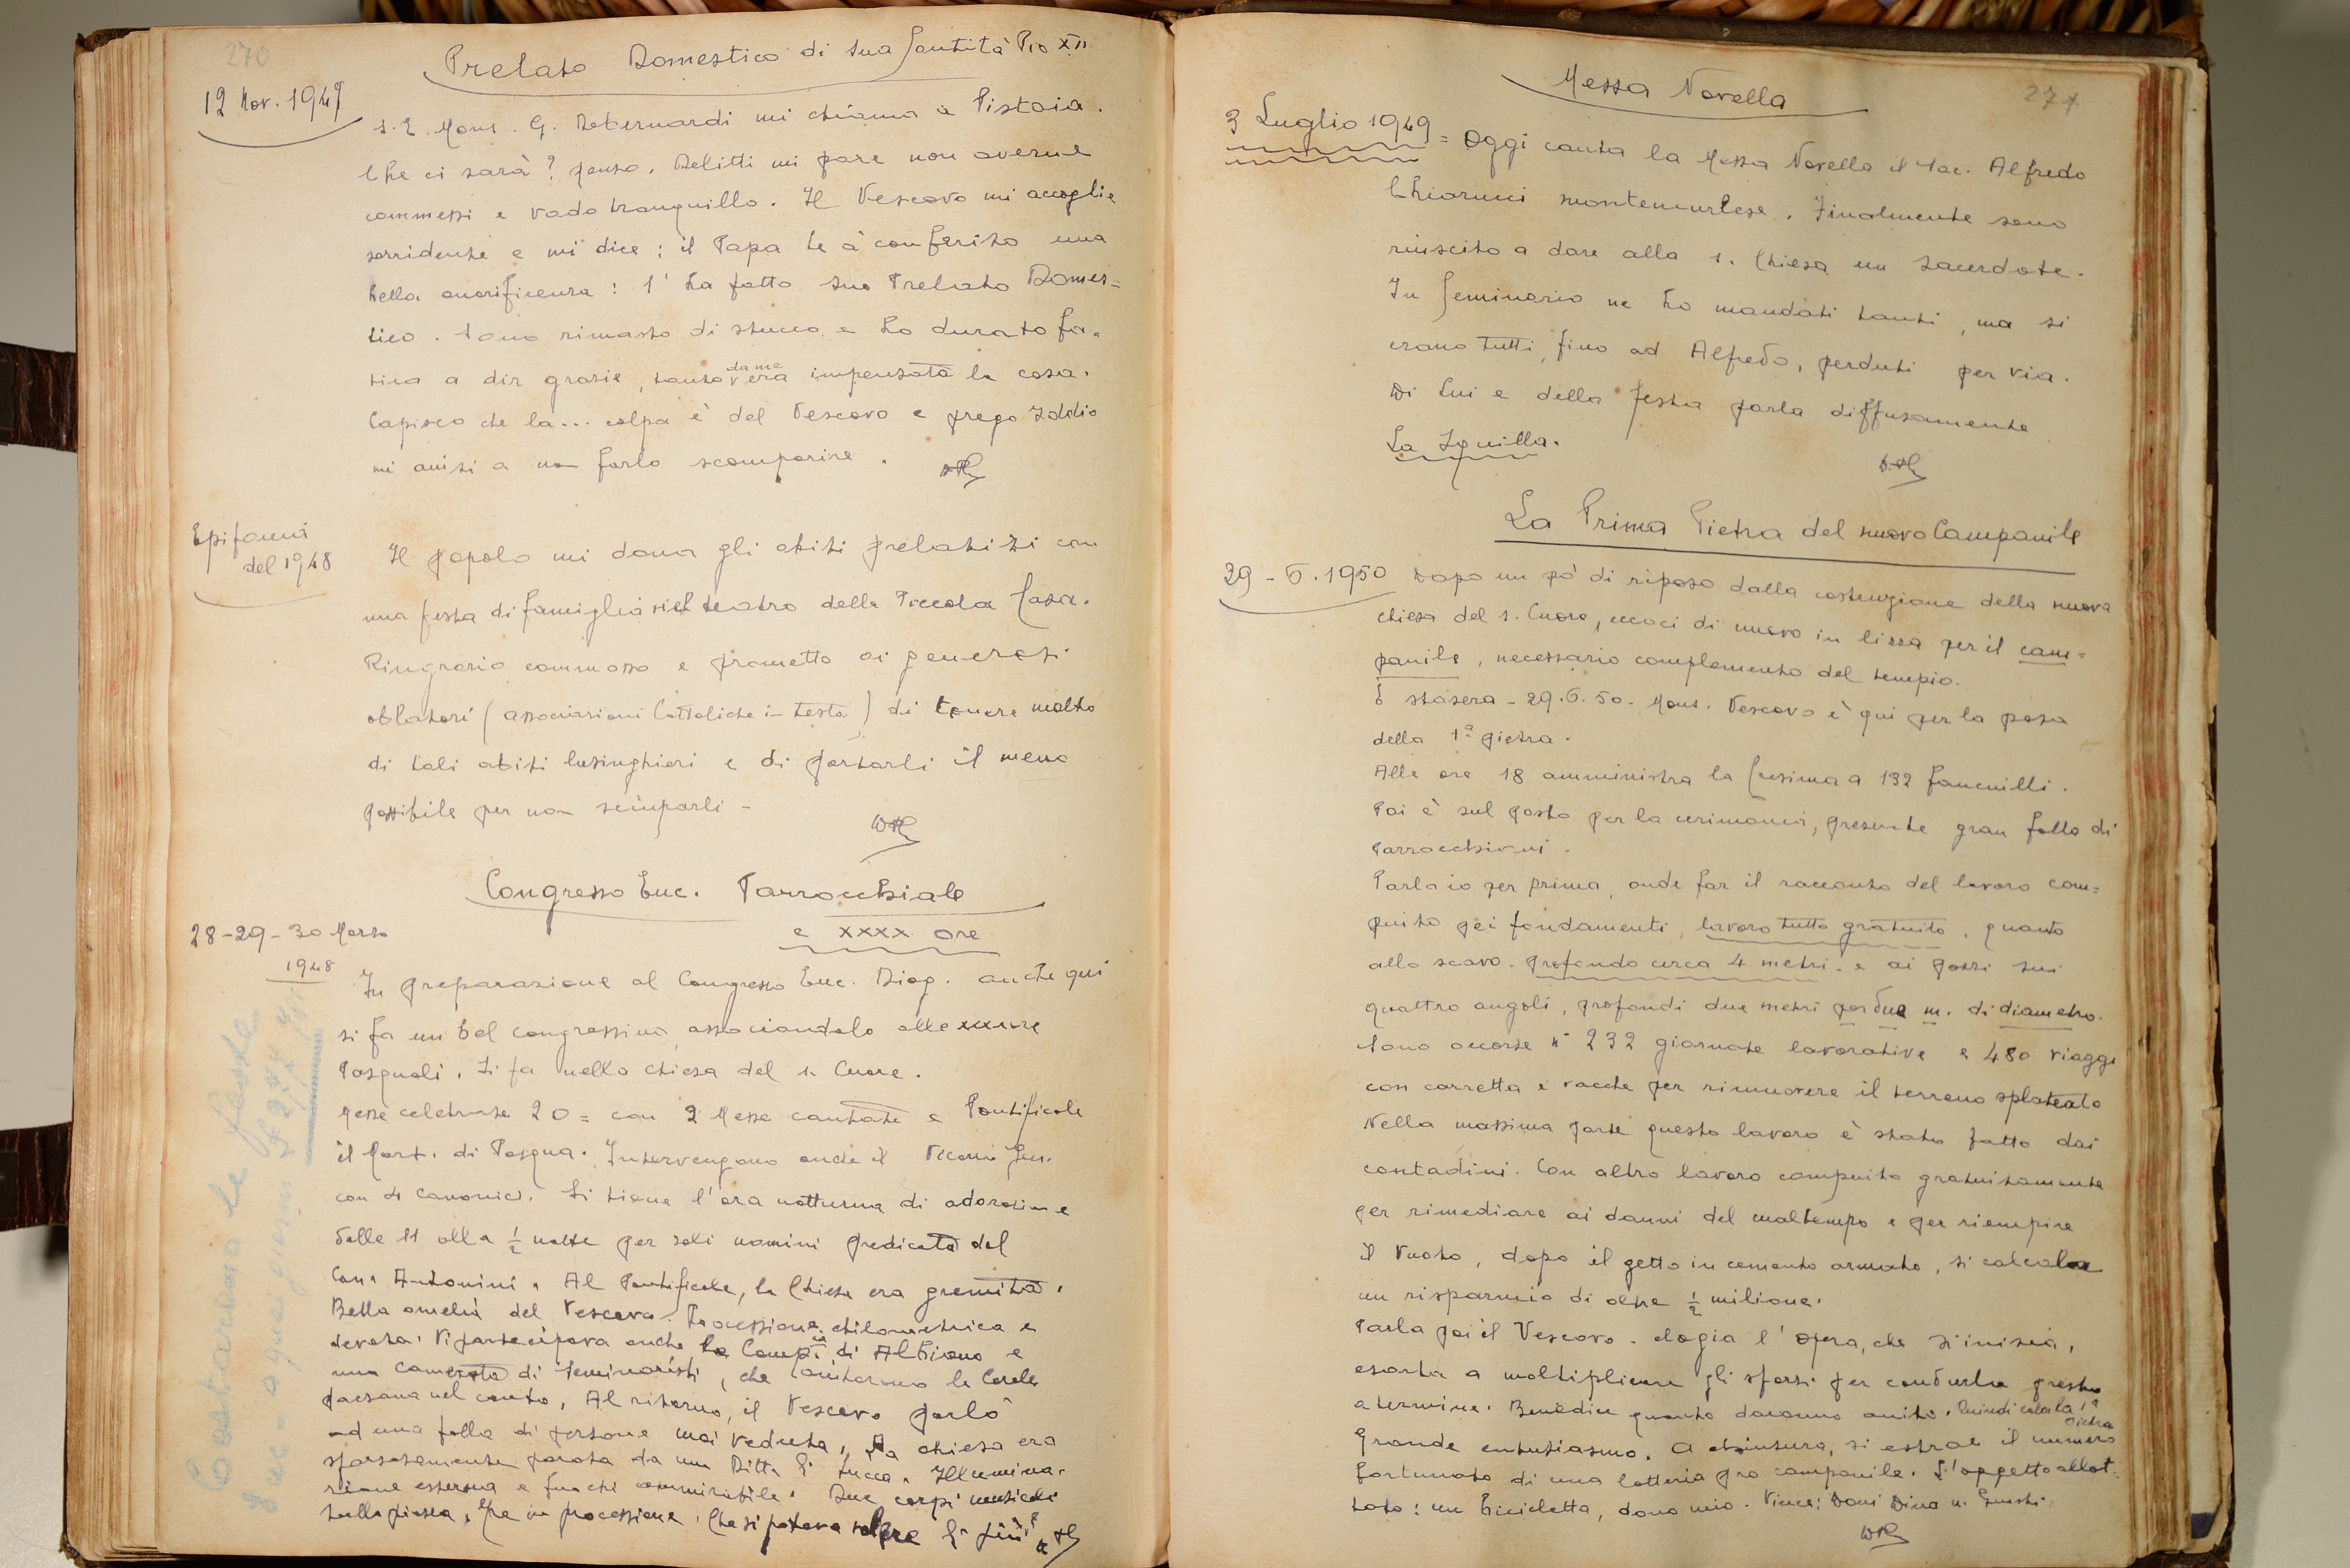 270
Prelato Domestico di Sua Santità Pio XII
12 Nov. 1947
S. E. Mons. G. Debernardi mi chiama a Pistoia.
Che ci sarà? penso. Delitti mi pare non averne
commessi e vado tranquillo. Il Vescovo mi accoglie
sorridente e mi dice: il Papa le à conferito una
bella onorificenza: l'ha fatto suo Prelato Domes=
tico. Sono rimasto di stucco e ho durato fa=
tica a dir grazie, tanto era da me impensata la cosa.
Capisco che la... colpa è del Vescovo e prego Iddio
mi aiuti a non farlo scomparire.
Epifania
del 1948
Il popolo mi dona gli abiti prelatizi con
una festa di famiglia nel teatro della Piccola Casa.
Ringrazio commosso e prometto ai generosi
oblatori (associazioni Cattoliche in testa) di tenere molto
di tali abiti lusinghieri e di portarli il meno
possibile per non sciuparli -
Congresso Euc. Parrocchiale
e XXXX ore
28-29-30 Marzo
1948
In preparazione al Congresso Euc. Diog. anche qui
si fa un bel congressino, associandolo alle xxxx ore
Pasquali. Si fa nella chiesa del S. Cuore.
Messe celebrate 20 = con 2 Messe cantate e Pontificale
il Mart. di Pasqua. Intervengono anche il Vicario Gen.
con 4 Canonici. Si tiene l'ora notturna di adorazione
dalle 11 alla ½ notte per soli uomini predicata dal
Can. Antonini. Al Pontificale, la Chiesa era gremita.
Bella omelia del Vescovo. Processione chilometrica e
devota. Vi partecipava anche la Comp. di Albiano e
una camerata di Seminaristi, che aiutarono la Corale
paesana nel canto. Al ritorno, il Vescovo parlò
ad una folla di persone mai veduta. La chiesa era
sfarzosamente parata da una Ditta di Lucca. Illumina=
zione esterna e fuochi ammirabile. Due corpi musicali
sulla piazza, e in processione. Che si poteva volere di più?
277
Messa Novella
3 Luglio 1949 = Oggi canta la Messa Novella il Sac. Alfredo
Chiarucci montemurlese. Finalmente sono
riuscito a dare alla S. Chiesa un Sacerdote.
In Seminario ne ho mandati tanti, ma si
erano tutti, fino ad Alfredo, perduti per via.
Di Lui e della festa parla diffusamente
La Squilla.
La Prima Pietra del nuovo Campanile
29 - 6. 1950 Dopo un pò di riposo dalla costruzione della nuova
chiesa del S. Cuore, eccoci di nuovo in lizza per il cam=
panile, necessario complemento del tempio.
E stasera - 29.6.50 - Mons. Vescovo è qui per la posa
della 1ª pietra.
Alle ore 18 amministra la Cresima a 132 fanciulli.
Poi è sul posto per la cerimonia, presente gran folla di
Parrocchiani.
Parlo io per primo, onde far il racconto del lavoro com=
piuto pei fondamenti, lavoro tutto gratuito, quanto
allo scavo - profondo circa 4 metri - e ai pozzi sui
quattro angoli, profondi due metri per due m. di diametro.
Sono occorse n° 232 giornate lavorative e 480 viaggi
con carretta e vacche per rimuovere il terreno splateato
Nella massima parte questo lavoro è stato fatto dai
contadini. Con altro lavoro compiuto gratuitamente
per rimediare ai danni del maltempo e per riempire
il vuoto, dopo il getto in cemento armato, si calcola
un risparmio di oltre ½ milione.
Parla poi il Vescovo - elogia l'opera, che s'inizia,
esorta a moltiplicare gli sforzi per condurla presto
a termine. Benedice quanto daranno aiuto. Quindi cala la 1ª pietra
Grande entusiasmo. A chiusura, si estrae il numero
fortunato di una lotteria pro campanile. L'oggetto allot=
tato: un bicicletta, dono mio. Vince: Doni Dino